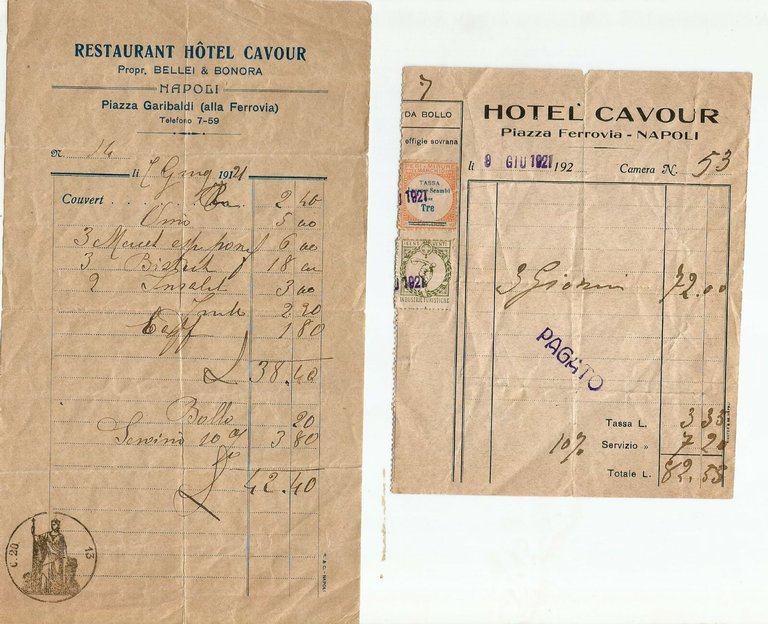 RESTAURANT HÔTEL CAVOUR
Propr. BELLEI & BONORA
NAPOLI
Piazza Garibaldi (alla Ferrovia)
Telefono 7-59
N. 14
li 7 Giug 1921
Couvert 2 40
Vino 5 00
3 6 00
3 Bistech 18 00
2 Insalat 3 00
Frutt 2 20
Caff 1 80
L 38.40
Bollo 20
Servizio 10 % 3 80
42.40
C. 20 13
7
DA BOLLO
effigie sovrana
HOTEL CAVOUR
Piazza Ferrovia - NAPOLI
li 9 GIU 1921 192 Camera N. 53
TASSA
Lusso e Scambi
Lire
Tre
1921
CENT. VENTI
1921
INDUSTRIE TURISTICHE
3 Giorni 72.00
PAGATO
Tassa L. 3 35
10% Servizio » 7 20
Totale L. 82.55